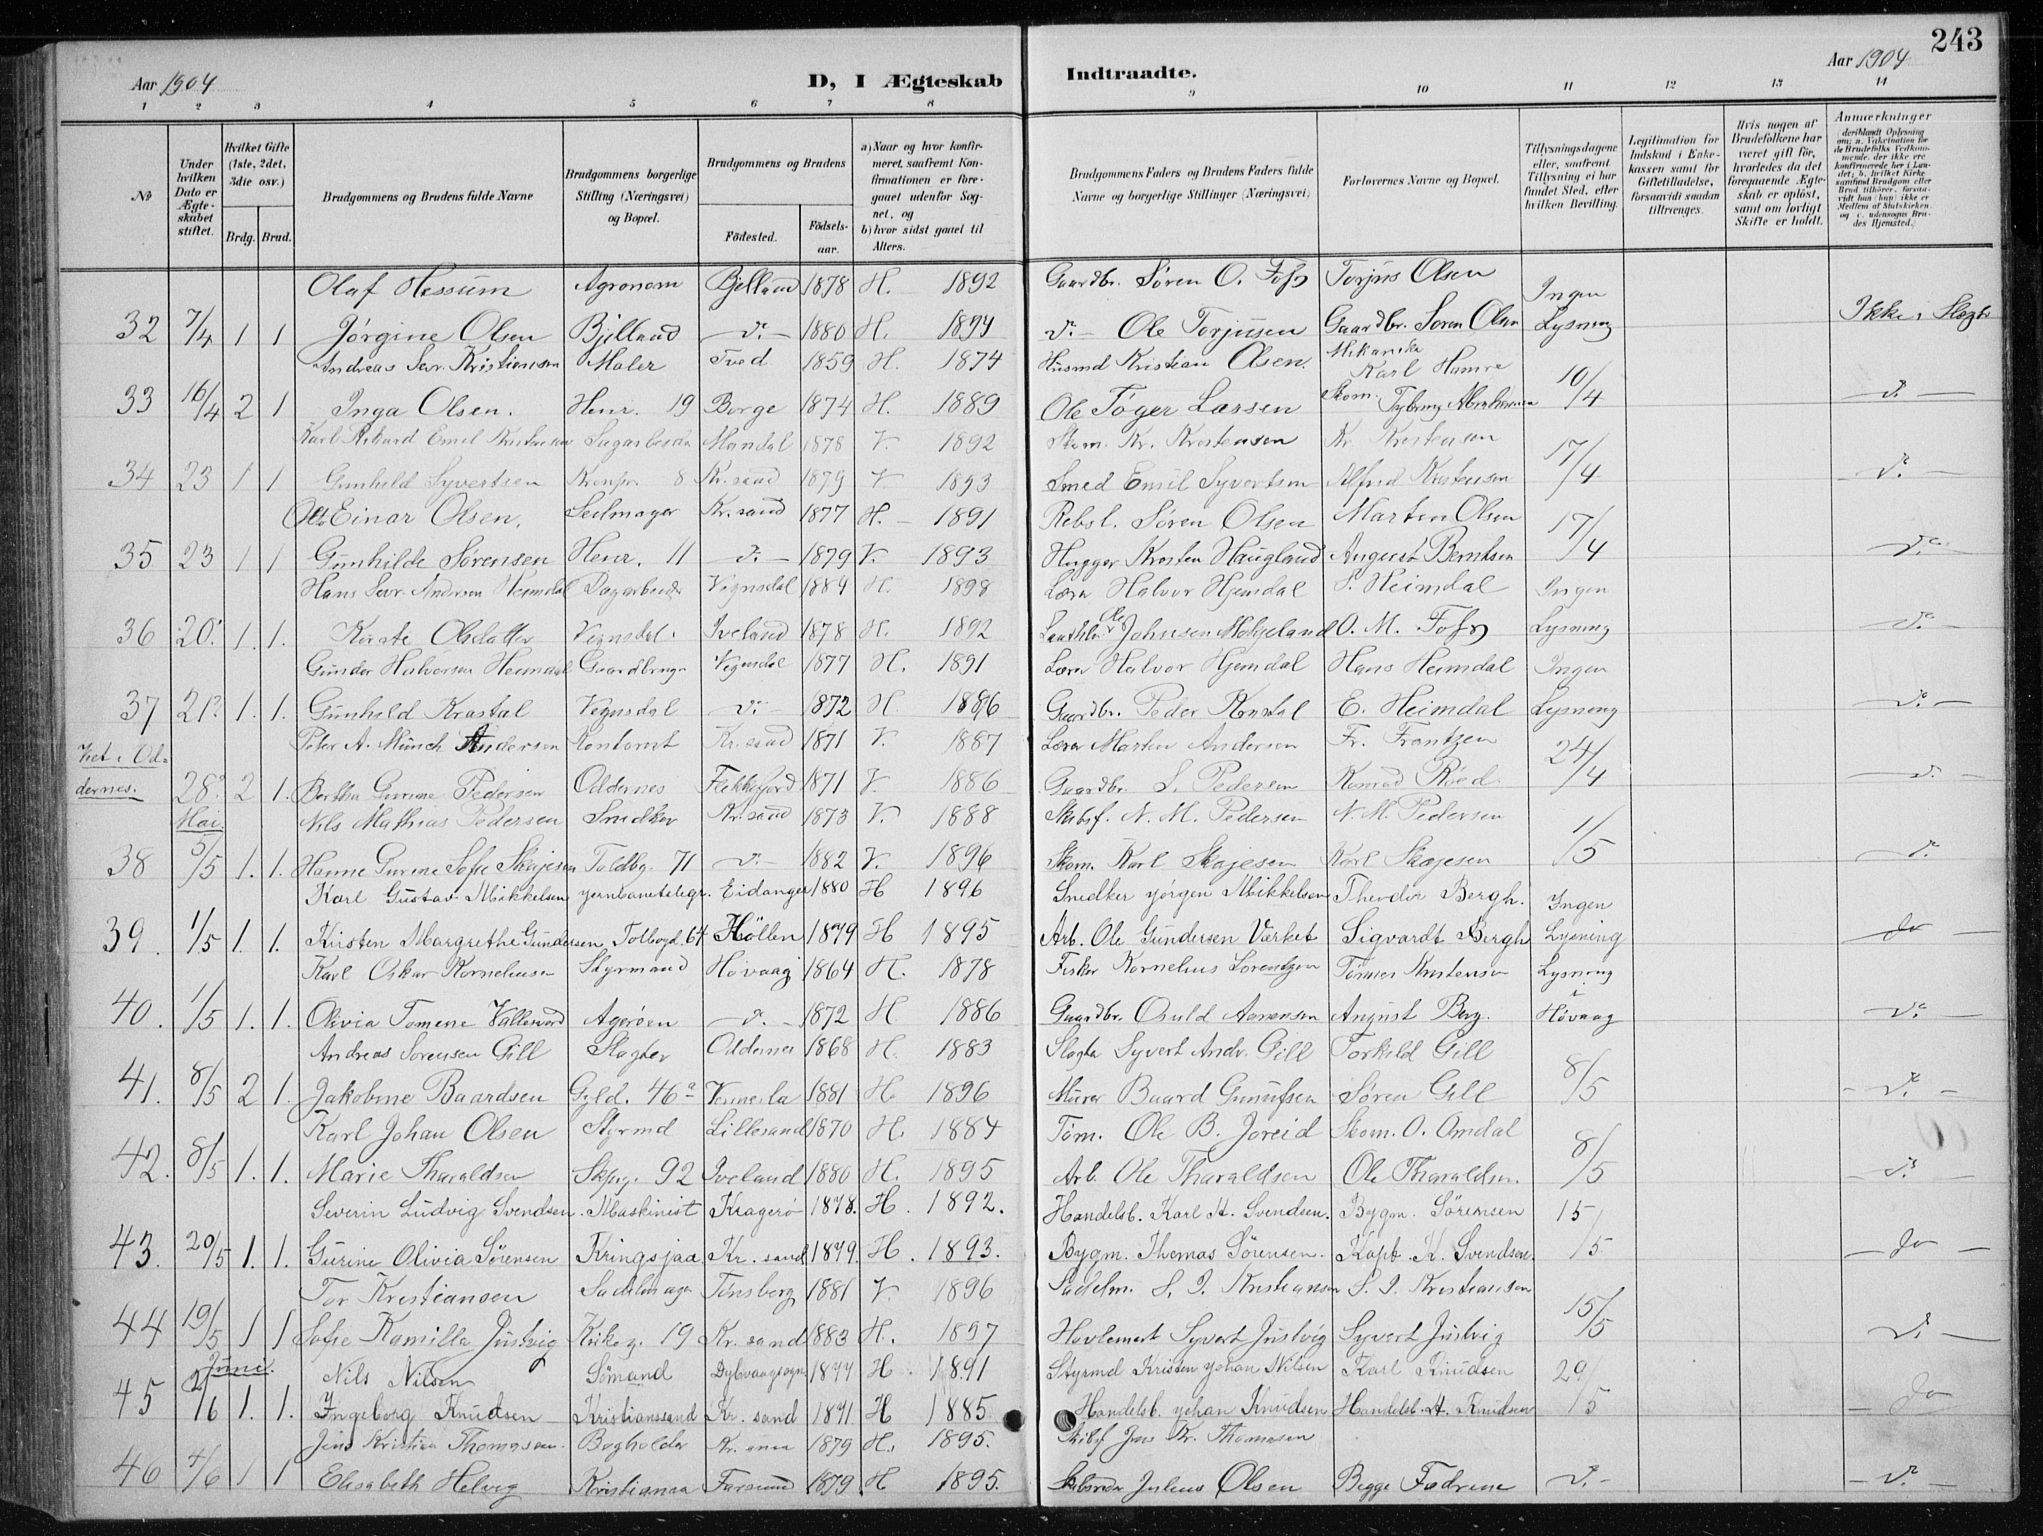 243
Aar 1904
D, I Ægteskab
Indtraadte.
Aar 1904
1 2 3 4 5 6 7 8 9 10 11 12 13 14
No
Under hvilken Dato er Ægteskabet stiftet.
Hvilket Gifte (1ste, 2det, 3die osv.)
Brdg. Brud.
Brudgommens og Brudens fulde Navne
Brudgommens borgerlige Stilling (Næringsvei) og Bopæl.
Brudgommens og Brudens
Fødested.
Fødselsaar.
a) Naar og hvor konfirmeret, saafremt Konfirmationen er foregaaet udenfor Sognet, og
b) hvor sidst gaaet til Alters.
Brudgommens Faders og Brudens Faders fulde Navne og borgerlige Stillinger (Næringsvei)
Forlovernes Navne og Bopæl.
Tillysningsdagene eller, saafremt Tillysning ei har fundet Sted, efter hvilken Bevilling.
Legitimation for Indskud i Enkekassen samt for Giftetilladelse, forsaavidt saadan tiltrænges.
Hvis nogen af Brudefolkene har været gift før, hvorledes da det foregaaende Ægteskab er opløst, samt om lovligt Skifte er holdt.
Anmærkninger
Olaf Hessum Agronom Bjelland 1878 H. 1892 Gaardbr. Søren O. Foss Torjus Olsen Ingen
32 7/4 1 1 Jørgine Olsen Bjelland do 1880 H. 1894 do Ole Torjusen Gaardbr. Soren Olsen Lysning Ikke i Slegt
Andreas Sev. Kristiansen Maler Tved 1859 H. 1874 Husmd Kristian Olsen. Karl Hamre
33 16/4 2 1 Inga Olsen. Henr. 19 Borge 1874 H. 1889 Ole Tøger Larsen Skom. 10/4 do
Karl Rikard Emil Kristensen Mandal 1878 V. 1892 Skom. Kr. Kristensen Kr. Kristensen
34 23 1 1 Gunhild Syvertsen Kronpr. 8 Kr.sand 1879 V. 1893 Smed Emil Syvertsen Alfred Kristensen 17/4 do
Otto Einar Olsen. Seilmager Kr. sand 1877 H. 1891 Rebsl. Søren Olsen Marten Olsen
35 23 1 1 Gunhilde Sørensen Henr. 11 do 1879 V. 1893 Hugger Kristen Haugland August Berntsen 17/4 do
Hans Sev. Andersen Heimdal Dagarbeider Vegusdal 1884 H. 1898 Lærer Halvor Hjemdal S. Heimdal Ingen
36 20. 1. 1. Karste Olsdatter Vegusdal. Iveland 1878 H. 1892 Johnsen O. M. Foss Lysning do
Gunder Halvorsen Heimdal Gaardbruger Vegusdal 1877 H. 1891 Lærer Halvor Hjemdal Hans Heimdal Ingen
37 21. 1. 1. Gunhild Krastal Vegusdal do 1872 H. 1886 Gaardbr. Peder Krastal E. Heimdal Lysning do
Peter A. Münch Andersen Kontorist Kr.sand 1871 V. 1887 Lærer Marten Andersen Fr. Frantzen
Viet i Oddernes. 28. 2 1. Bertha Gurine Pedersen Oddernes Flekkefjord 1871 V. 1886 Gaardbr. S. Pedersen Konrad Röed. 24/4 do
Mai
Nils Mathias Pedersen Snedker Kr. sand 1873 V. 1888 Skibsf. N. M. Pedersen N. M. Pedersen
38 5/5 1. 1. Hanne Gurine Sofie Skajesen Toldbg. 71 do 1882 V. 1896 Skom. Karl Skajesen Karl Skajesen 1/5 do
Karl Gustav Mikkelsen jernbanetelegr. Eidanger 1880 H 1896 Snedker Jørgen Mikkelsen Theodor Bergh. Ingen
39. 1/5 1. 1. Kirsten Margrethe Gundersen Tolbogd. 64 Höllen 1879 H 1895 Arb. Ole Gundersen Værket Sigvardt Bergh Lysning do
Karl Oskar Kornelius­sen Styrmand Høvaag 1864 H. 1878 Fisker Kornelius Lorentzen Tønnes Kristensen Lysning
40. 1/5 1. 1. Olivia Tomene Vallesverd Agerøen do 1872 H 1886 Gaardbr. Osuld Aanensen August Berg. i Høvaag do
Andreas Sorensen Gill Slagter Oddernes 1868 H. 1883 Slagter Syvert Andr. Gill Torkild Gill
41. 8/5 2 1. Jakobine Baardsen Gyld. 46a Vennesla 1881 H. 1896 Murer Baard Gunufsen Søren Gill 8/5 do
Karl Johan Olsen Styrmd Lillesand 1870 H. 1884 Tøm. Ole B. Joreid Skom. O. Omdal
42. 8/5 1. 1. Marie Tharaldsen Skiprg. 92 Iveland 1880 H. 1895 Arb. Ole Tharaldsen Ole Tharaldsen. 8/5 do
Severin Ludvig Svendsen. Maskinist Kragerø 1878. H. 1892. Handelsb. Karl A. Svendsen. Bygm. Sörensen
43. 20/5 1. 1. Gurine Olivia Sörensen Kringsjaa Kr. sand 1879. H. 1893. Bygm. Thomas Sörensen. Kapt. K. Svendsen. 15/5 do
Tor Kristiansen Sadelmager Tønsberg 1881 V. 1896 Sadelm. S. I. Kristiansen S. I. Kristiansen
44 19/5 1 1 Sofie Kamilla Justvig Kirkeg. 19 Kr. sand 1883 H. 1897 Syvert Justvig Syvert Justvig 15/5 do
Juni.
Nils Nilsen Sömand Dybvaagsogn 1877 H. 1891 Styrmd Kristen Johan Nilsen Karl Knudsen
45 2/6 1. 1. Ingeborg Knudsen Kristianssand Kr. sand 1871 H 1885 Handelsb. Johan Knudsen Handelsb. A. Knudsen 29/5 do
Jens Kristian Thomasen. Bogholder 1879 H. 1895. Skibsf Jens Kr. Thomasen
46 4/6 1 1 Elisabeth Helvig Kristiania Farsund 1879 H 1895. Skibsreder Julius Olsen Begge Fædrene do do